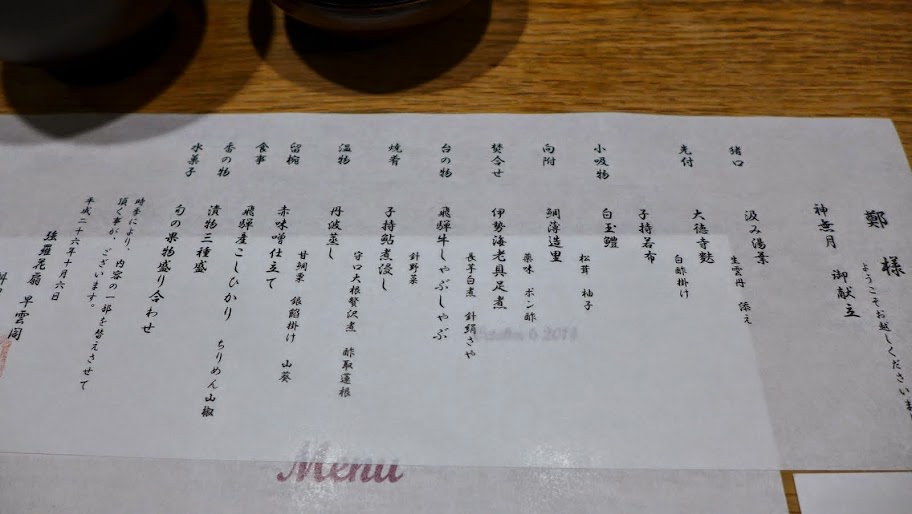 鄭 様
ようこそお越しくださいま
神無月 御献立
猪口 汲み湯葉
生雲丹 添え
先付 大徳寺麩
白酢掛け
子持若布
小吸物 白玉鱧
松茸 柚子
向附 鯛薄造里
薬味 ポン酢
焚合せ 伊勢海老具足煮
長芋白煮 針絹さや
台の物 飛騨牛しゃぶしゃぶ
針野菜
焼肴 子持鮎煮浸し
守口大根贅沢煮 酢取蓮根
温物 丹波蒸し
甘鯛栗 銀餡掛け 山葵
留椀 赤味噌仕立て
食事 飛騨産こしひかり ちりめん山椒
香の物 漬物三種盛
水菓子 旬の果物盛り合わせ
時季により、内容の一部を替えさせて
頂く事が、ございます。
平成二十六年十月六日
強羅花扇 早雲閣
October 6 2014
Menu